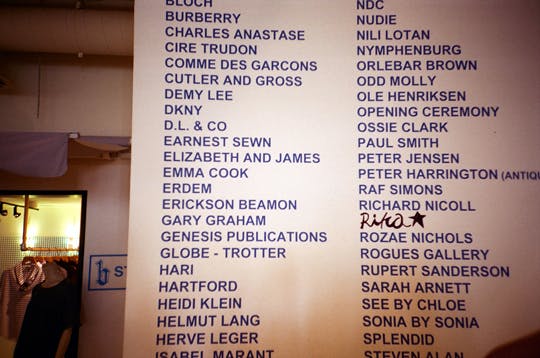 BLOCH
BURBERRY
CHARLES ANASTASE
CIRE TRUDON
COMME DES GARCONS
CUTLER AND GROSS
DEMY LEE
DKNY
D.L. & CO
EARNEST SEWN
ELIZABETH AND JAMES
EMMA COOK
ERDEM
ERICKSON BEAMON
GARY GRAHAM
GENESIS PUBLICATIONS
GLOBE - TROTTER
HARI
HARTFORD
HEIDI KLEIN
HELMUT LANG
HERVE LEGER
ISABEL MARANT
NDC
NUDIE
NILI LOTAN
NYMPHENBURG
ORLEBAR BROWN
ODD MOLLY
OLE HENRIKSEN
OPENING CEREMONY
OSSIE CLARK
PAUL SMITH
PETER JENSEN
PETER HARRINGTON (ANTIQU
RAF SIMONS
RICHARD NICOLL
Rika★
ROZAE NICHOLS
ROGUES GALLERY
RUPERT SANDERSON
SARAH ARNETT
SEE BY CHLOE
SONIA BY SONIA
SPLENDID
STEVEN ALAN
b ST